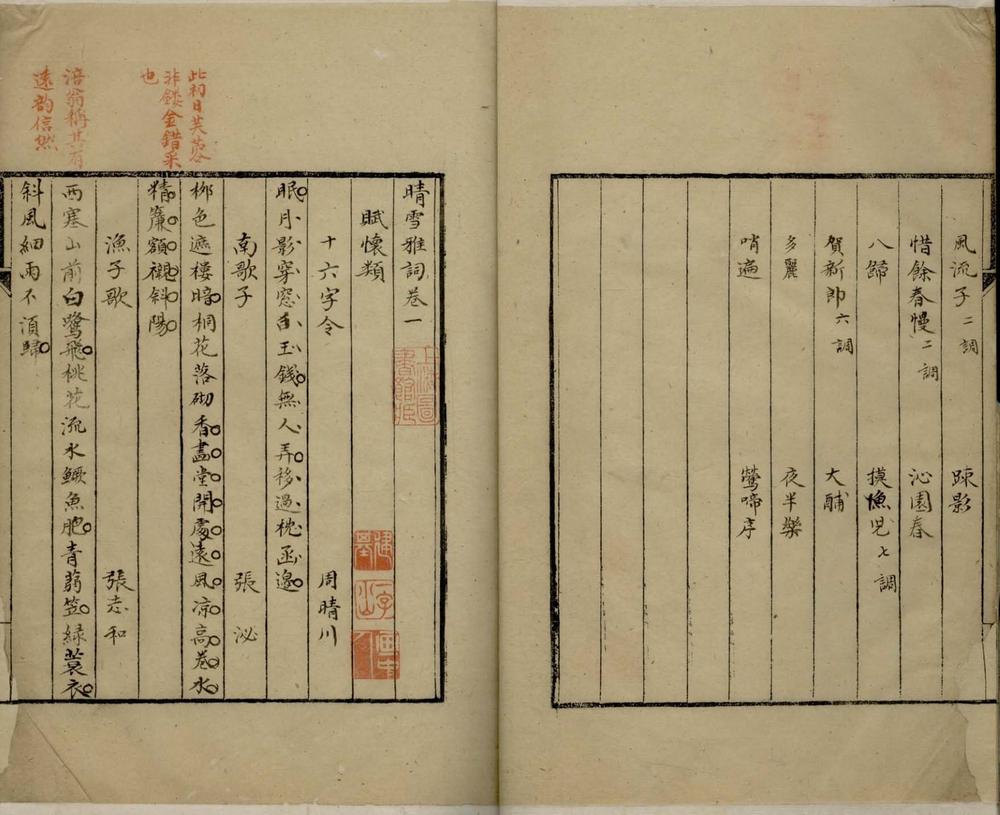 風流子二調
疎影
惜餘春慢二調
沁園春
八歸
摸魚兒七調
賀新郎六調
大酺
多麗
夜半樂
哨遍
鶯啼序
晴雪雅詞卷一
賦懷類
十六字令
周晴川
眠月影穿窓白玉錢無人弄移過枕函邊
南歌子
張泌
柳色遮樓暗桐花落砌香畵堂開處遠風凉高卷水
精簾額襯斜陽
漁子歌
張志和
西塞山前白鷺飛桃花流水鱖魚肥青蒻笠綠蓑衣
斜風細雨不湏歸
此初日芙蓉
非鏤金錯采
也
涪翁稱其有
遠韵信然
上海圖
書館藏